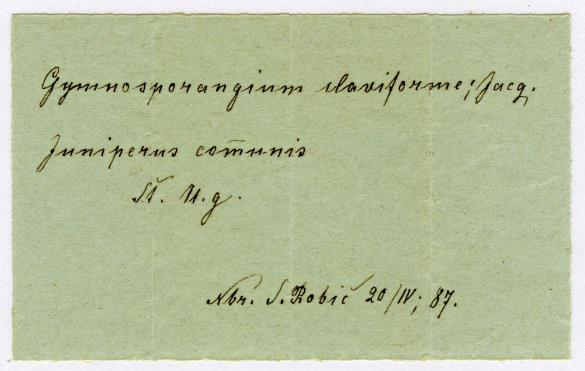 Gymnosporangium claviforme; Jacq.
Juniperus com̄unis
Št. U. g.
Nbr. S. Robič 20/IV; 87.